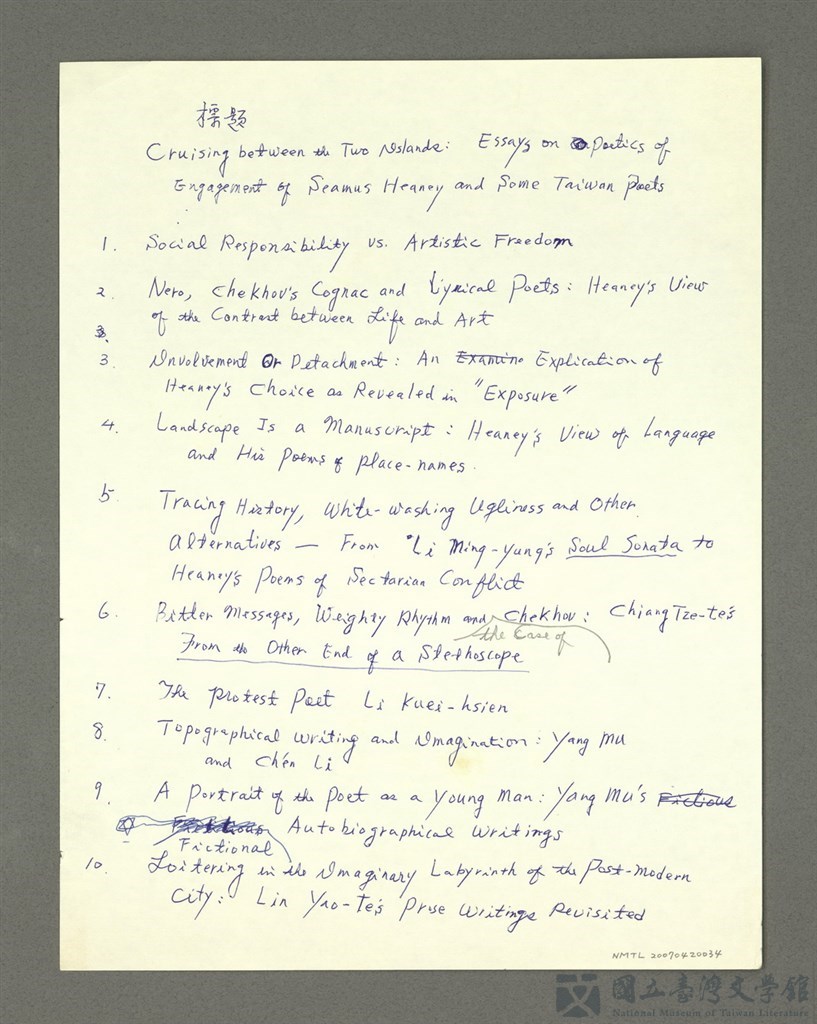 標題
Cruising between the Two Islands: Essays on Poetics of
Engagement of Seamus Heaney and Some Taiwan Poets
1. Social Responsibility vs. Artistic Freedom
2. Nero, Chekhov's Cognac and Lyrical Poets: Heaney's View
of the Contrast between Life and Art
3.
3. Involvement Or Detachment: An Examine Explication of
Heaney's Choice as Revealed in "Exposure"
4. Landscape Is a Manuscript: Heaney's View of Language
and His Poems of place-names.
5. Tracing History, White-washing Ugliness and Other
Alternatives — From Li Ming-yung's Soul Sonata to
Heaney's Poems of Sectarian Conflict
6. Bitter Messages, Weighty Rhythm and Chekhov: Chiang Tze-te's
the Case of
From the Other End of a Stethoscope
7. The Protest Poet Li Kuei-hsien
8. Topographical Writing and Imagination: Yang Mu
and Ch'en Li
9. A Portrait of the Poet as a Young Man: Yang Mu's Fictious
Autobiographical Writings
Fictional
10. Loitering in the Imaginary Labyrinth of the Post-modern
City: Lin Yao-Te's Prose Writings Revisited
NMTL 20070420034
國立臺灣文學館
National Museum of Taiwan Literature